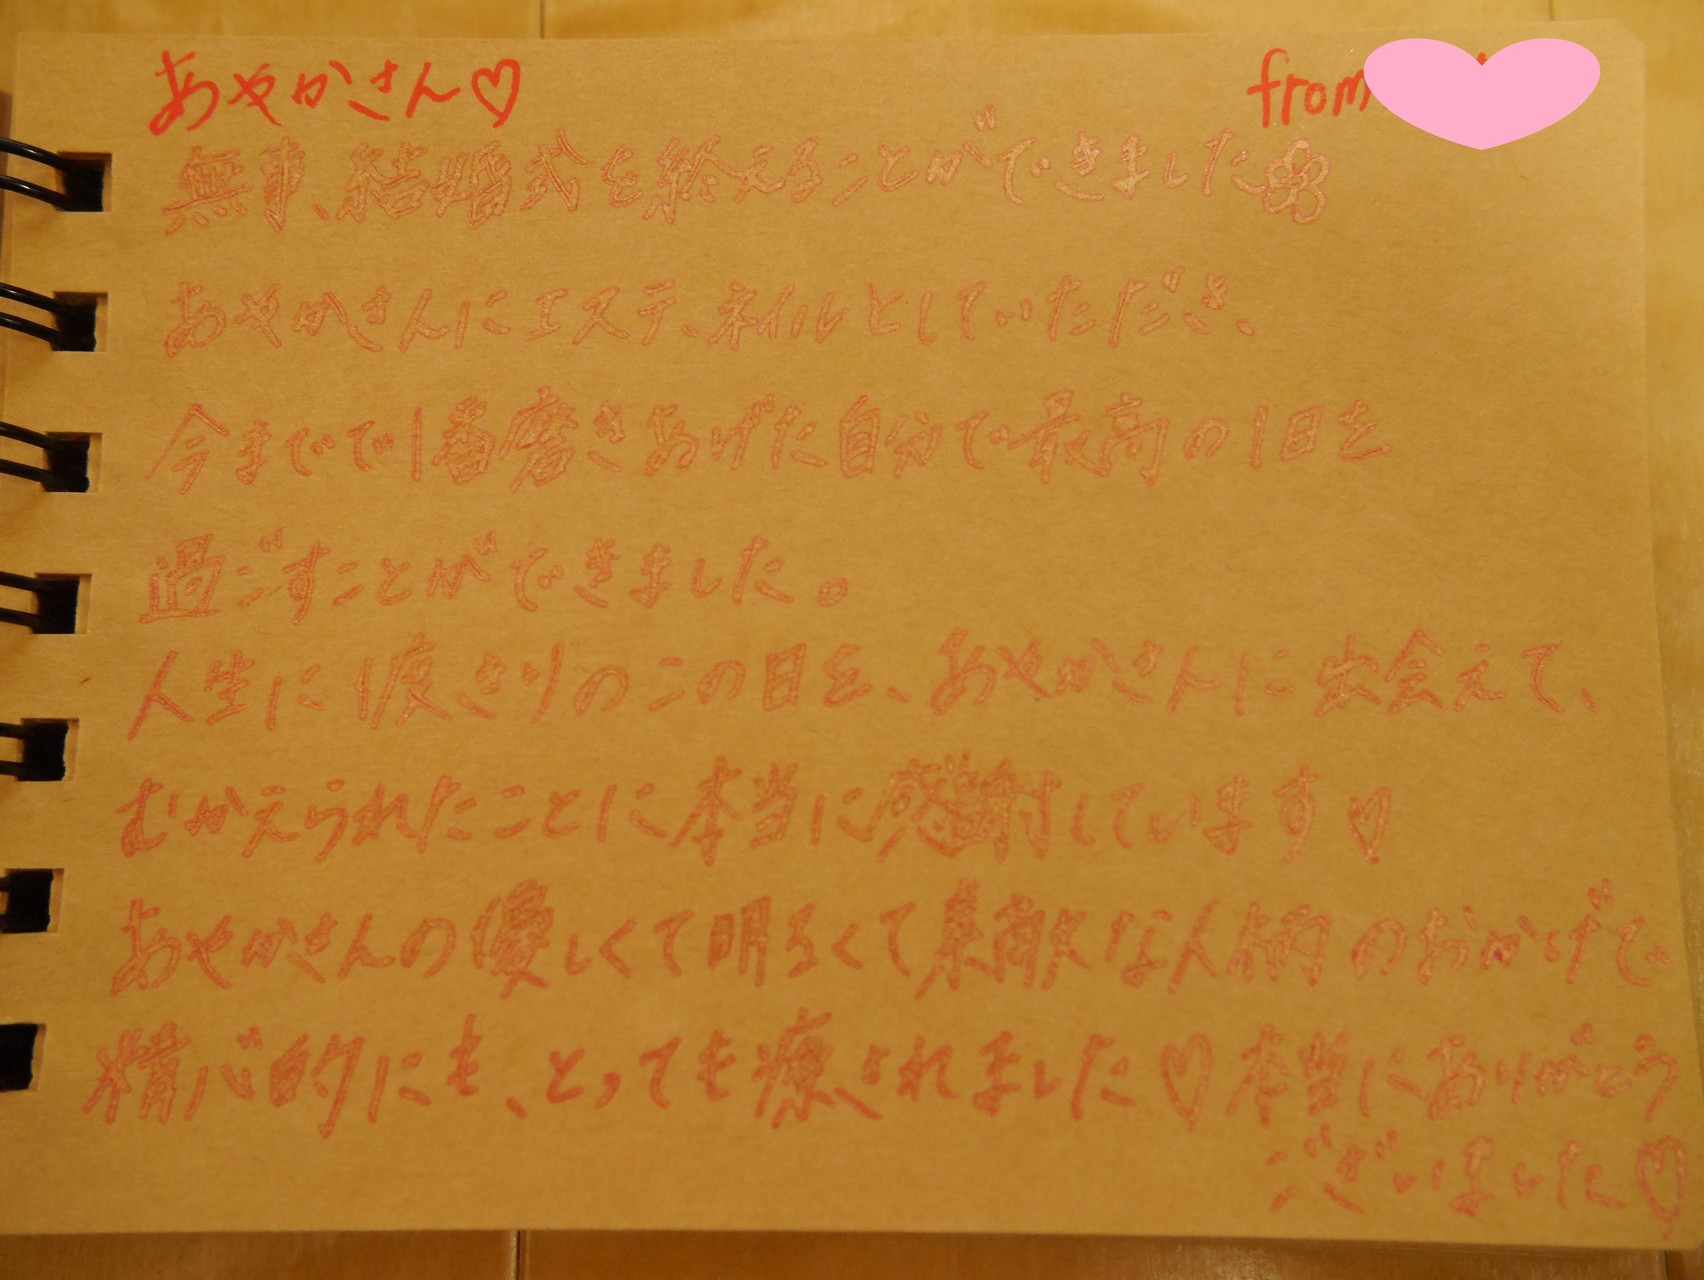 あやかさん♡ from
無事、結婚式を終えることができました
あやかさんにエステ、ネイルとしていただき、
今までで1番磨きあげた自分で最高の1日を
過ごすことができました。
人生に1度きりのこの日を、あやかさんに出会えて、
むかえられたことに本当に感謝しています♡
あやかさんの優しくて明るくて素敵な人柄のおかげで
精心的にも、とっても癒されました♡本当にありがとう
ございました♡